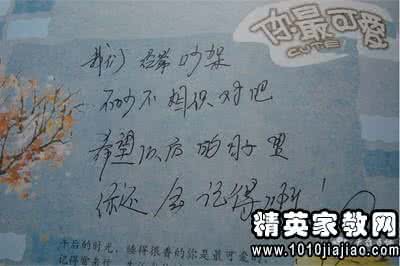 你最可爱
CUTE
我们经常吵架
不吵不相识对吧
希望以后的日子里
你还会记得
午后的时光，睡得很香的你是最可爱
记得
精英家教网
www.1010jiajiao.com